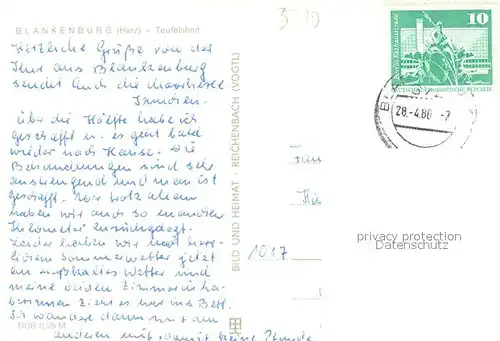 BLANKENBURG (Harz) – Teufelsbad
3310
Herzliche Grüße von der
Kur aus Blankenburg
sendet Euch die
über die Hälfte habe ich
geschafft u. es geht bald
wieder nach Hause. Die
Behandlungen sind sehr
anstrengend und man ist
geschafft. Aber trotz allem
haben wir auch so manchen
Kilometer zurückgelegt.
Leider hatten wir nach herr-
lichem Sommerwetter jetzt
ein naßkaltes Wetter und
meine beiden Zimmereinha-
berinnen zieht es nur ins Bett.
Ich wandere dann mit den
anderen mit, damit keine Stunde
MDR 0,25 M
BILD UND HEIMAT · REICHENBACH (VOGTL)
10
DEUTSCHE DEMOKRATISCHE REPUBLIK
28.-4.80 -7
Fam
1017
privacy protection
Datenschutz